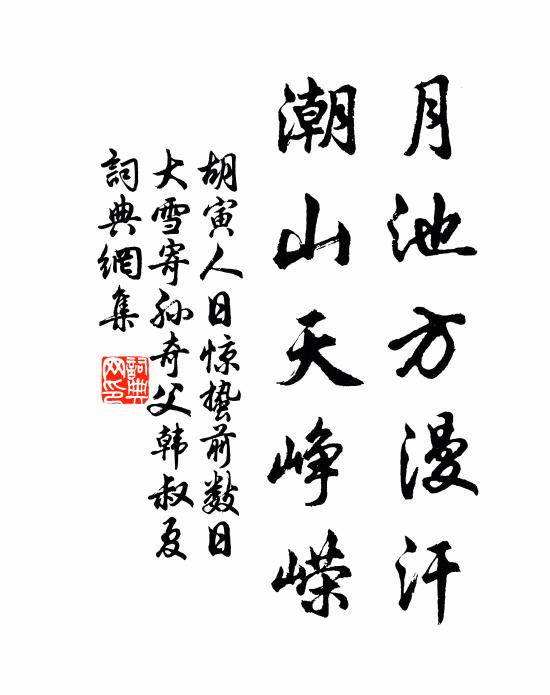 月池方漫汗
潮山天峥嵘
胡寅人日惊蛰前数日
大雪寄孙奇父韩叔夏
詞典網集
詞典
网印